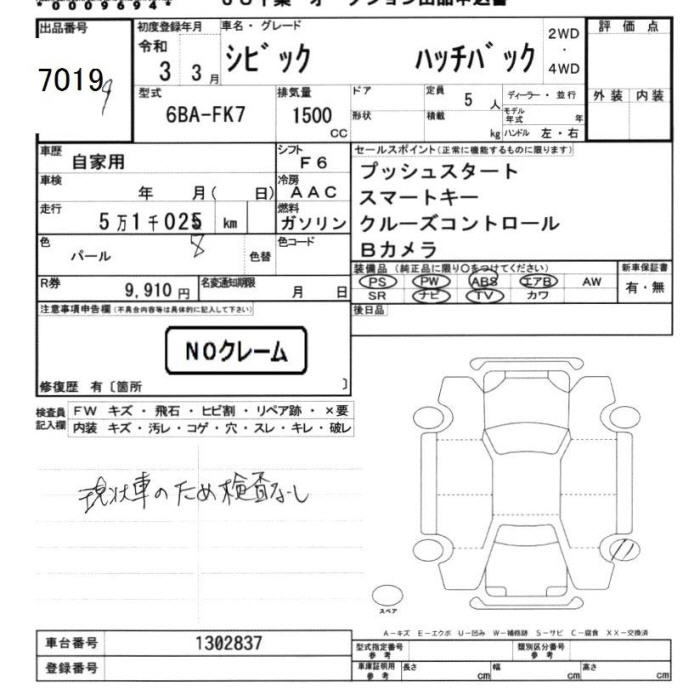 *00096944*
出品番号 初度登録年月 車名・グレード 2WD 評価点
令和 ・
7019 9 3 3月 シビック ハッチバック 4WD
型式 排気量 ドア 定員 5 人 ディーラー・並行 外装 内装
6BA-FK7 1500 CC 形状 積載 kg モデル年式 年
ハンドル 左・右
車歴 自家用 シフト F6 セールスポイント(正常に機能するものに限ります)
車検 年 月( 日) 冷房 AAC プッシュスタート
走行 5万1千025 km 燃料 ガソリン スマートキー
8 クルーズコントロール
色 パール 色替 色コード Bカメラ
R券 9,910円 名変通知期限 月 日 装備品(純正品に限り○をつけてください) 新車保証書
PS PW ABS エアB AW 有・無
SR ナビ TV カワ
注意事項申告欄(不具合内容等は具体的に記入して下さい) 後日品
NOクレーム
修復歴 有〔箇所 〕
検査員記入欄 FW キズ・飛石・ヒビ割・リペア跡・×要
内装 キズ・汚レ・コゲ・穴・スレ・キレ・破レ
現状車のため検査なし
スペア
A-キズ E-エクボ U-凹み W-補修跡 S-サビ C-腐食 XX-交換済
車台番号 1302837 型式指定番号 参考 類別区分番号 参考
登録番号 車庫証明用 参考 長さ cm 幅 cm 高さ cm